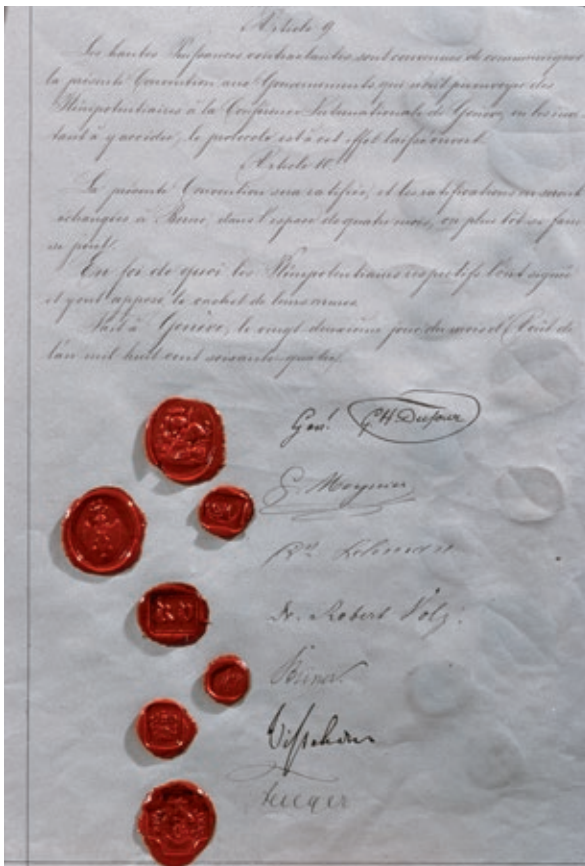 Article 9
Les hautes Puissances contractantes sont convenues de communiquer
la présente Convention aux Gouvernements qui n'ont pu envoyer des
Plénipotentiaires à la Conférence Internationale de Genève, en les invi
tant à y accéder; le protocole est à cet effet laissé ouvert.
Article 10.
La présente Convention sera ratifiée, et les ratifications en seront
échangées à Berne, dans l'espace de quatre mois, ou plus tôt si faire
se peut.
En foi de quoi les Plénipotentiaires respectifs l'ont signée
et y ont apposé le cachet de leurs armes.
Fait à Genève, le vingt deuxième jour du mois d'Août de
l'an mil huit cent soixante-quatre.
Gén! G H Dufour
G. Moynier
Dr. Lehmann
Dr. Robert Volz.
Steiner.
Visschers
Fenger